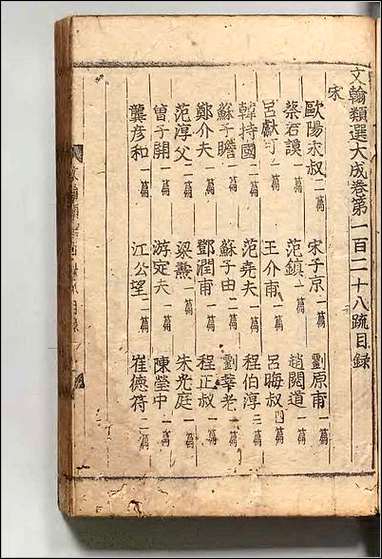 文翰類選大成卷第一百二十八疏目錄
宋
歐陽永叔二篇 宋子京一篇 劉原甫一篇
蔡君謨一篇 范鎮一篇 趙閱道一篇
呂獻可一篇 王介甫一篇 呂晦叔四篇
韓持國一篇 范堯夫一篇 程伯淳三篇
蘇子瞻二篇 蘇子由二篇 劉莘老一篇
鄭介夫一篇 鄧潤甫一篇 程正叔一篇
范淳父一篇 梁燾一篇 朱光庭一篇
曾子開一篇 游定夫一篇 陳瑩中一篇
龔彥和一篇 江公望三篇 崔德符一篇